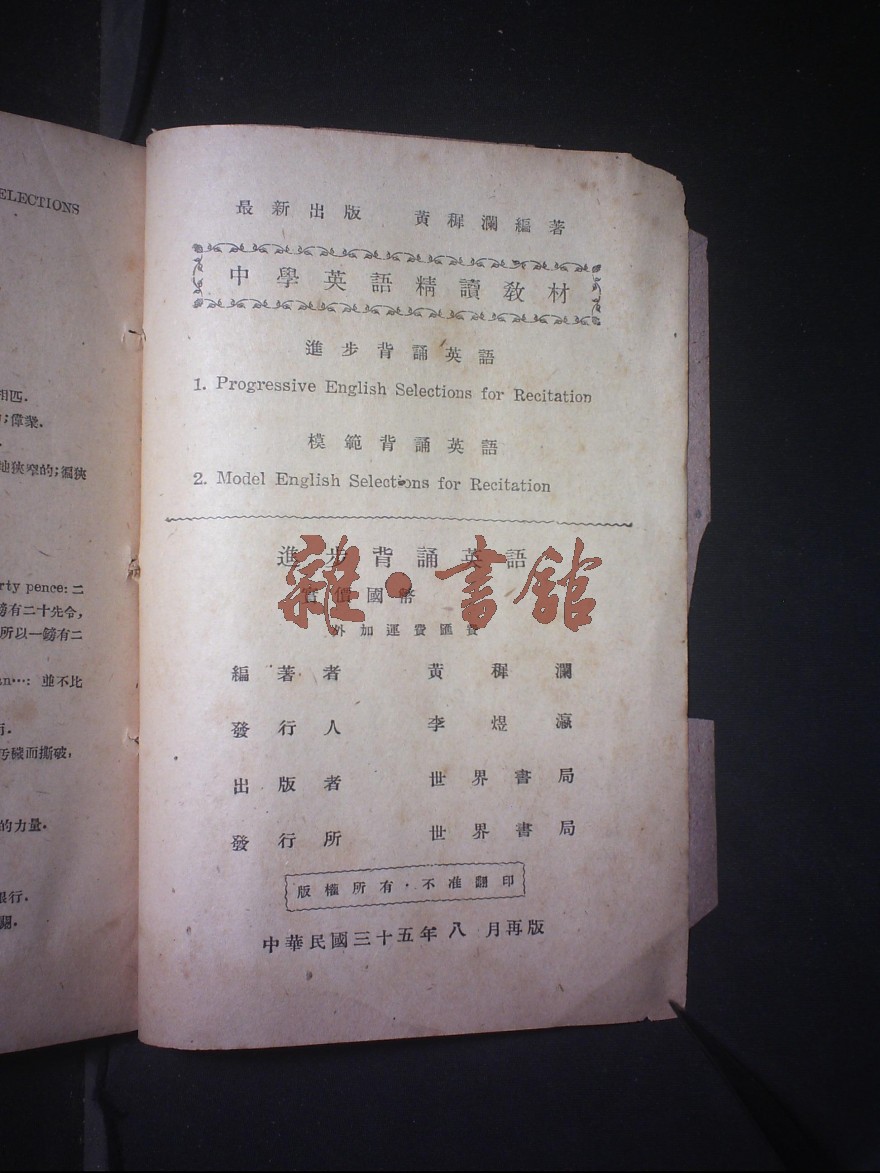 ELECTIONS
相匹.
;偉業.
地狹窄的;徧狹
rty pence: 二
鎊有二十先令,
所以一鎊有二
an…: 並不比
行.
汚穢而撕破,
的力量.
銀行.
關.
最新出版 黃穉瀾編著
中學英語精讀教材
進步背誦英語
1. Progressive English Selections for Recitation
模範背誦英語
2. Model English Selections for Recitation
進步背誦英語
實價國幣
外加運費匯費
雜·書館
編著者 黃穉瀾
發行人 李煜瀛
出版者 世界書局
發行所 世界書局
版權所有·不准翻印
中華民國三十五年八月再版